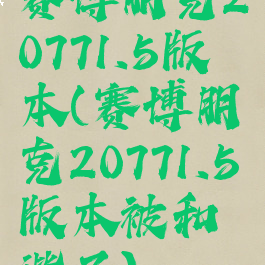 赛博朋克2
0771.5版
本(赛博朋
克20771.5
版本被和
谐了)